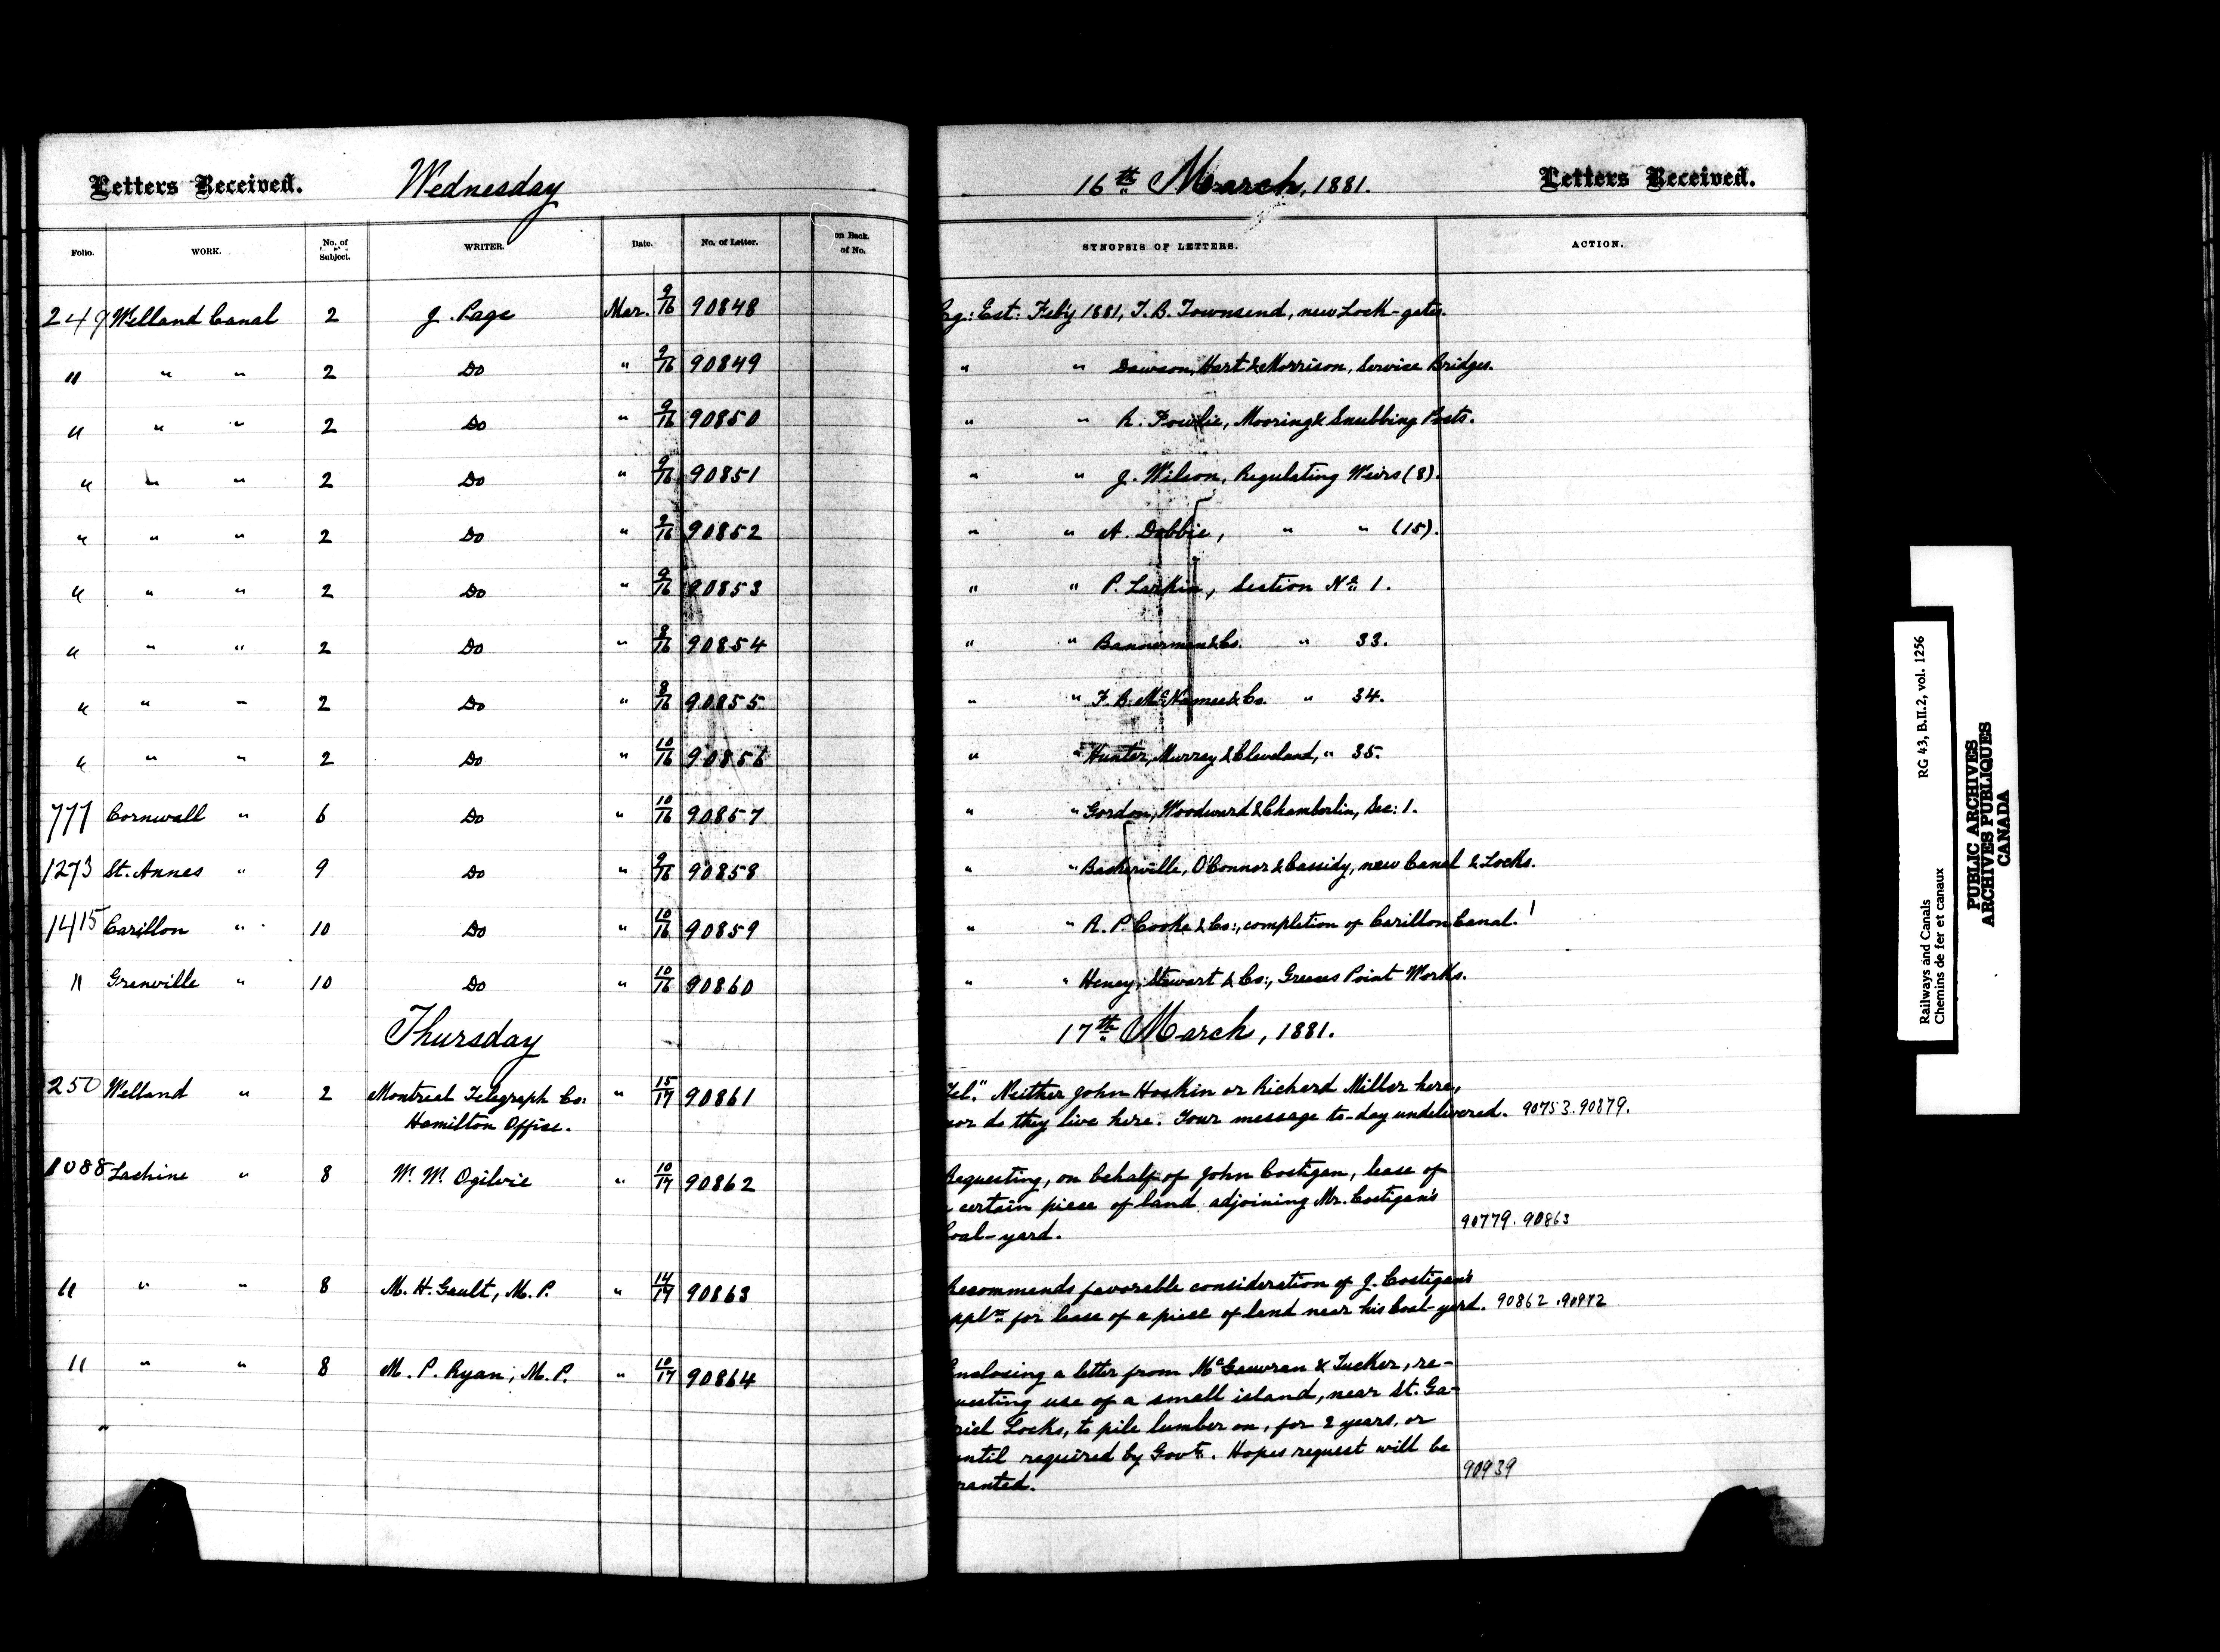 Letters Received. Wednesday 16th March, 1881. Letters Received.
Folio. WORK. No. of Subject. WRITER. Date. No. of Letter. on Back. of No. SYNOPSIS OF LETTERS. ACTION.
249 Welland Canal 2 J. Page Mar. 9/16 90848 g: Est: Feb'y 1881, T. B. Townsend, new Lock-gates.
" " " 2 Do " 9/16 90849 " " Dawson, Hart & Morrison, Service Bridges.
" " " 2 Do " 9/16 90850 " " R. Powlie, Mooring & Snubbing Posts.
" " " 2 Do " 9/16 90851 " " J. Wilson, Regulating Weirs (8).
" " " 2 Do " 9/16 90852 " " A. Dobbie, " " (15).
" " " 2 Do " 9/16 90853 " " P. Larkin, Section No. 1.
" " " 2 Do " 9/16 90854 " " Bannerman & Co. " 33.
" " " 2 Do " 9/16 90855 " " F. B. McNamee & Co. " 34.
" " " 2 Do " 10/16 90856 " " Hunter, Murray & Cleveland, " 35.
777 Cornwall " 6 Do " 10/16 90857 " " Gordon, Woodward & Chamberlin, Sec: 1.
1273 St. Annes " 9 Do " 9/16 90858 " " Baskerville, O'Connor & Cassidy, new Canal & Locks.
1415 Carillon " 10 Do " 10/16 90859 " " R. P. Cooke & Co:, completion of Carillon Canal.
" Grenville " 10 Do " 10/16 90860 " " Heney, Stewart & Co:, Greeces Point Works.
Thursday 17th March, 1881.
250 Welland " 2 Montreal Telegraph Co: " 15/17 90861 Tel. "Neither John Hoskin or Richard Miller here,
Hamilton Office. nor do they live here. Your message to-day undelivered. 90753. 90879.
1088 Lachine " 8 W. W. Ogilvie " 10/17 90862 Requesting, on behalf of John Costigan, lease of
certain piece of land adjoining Mr. Costigan's
Coal-yard. 90779. 90863
" " " 8 M. H. Gault, M. P. " 14/17 90863 Recommends favorable consideration of J. Costigan's
appln for lease of a piece of land near his Coal-yard. 90862. 90972
" " " 8 M. P. Ryan, M. P. " 10/17 90864 Enclosing a letter from McGauvran & Tucker, re-
questing use of a small island, near St. Ga-
briel Locks, to pile lumber on, for 2 years, or
until required by Govt. Hopes request will be
granted. 90939
Railways and Canals RG 43, B.II.2, vol. 1256
Chemins de fer et canaux
PUBLIC ARCHIVES
ARCHIVES PUBLIQUES
CANADA